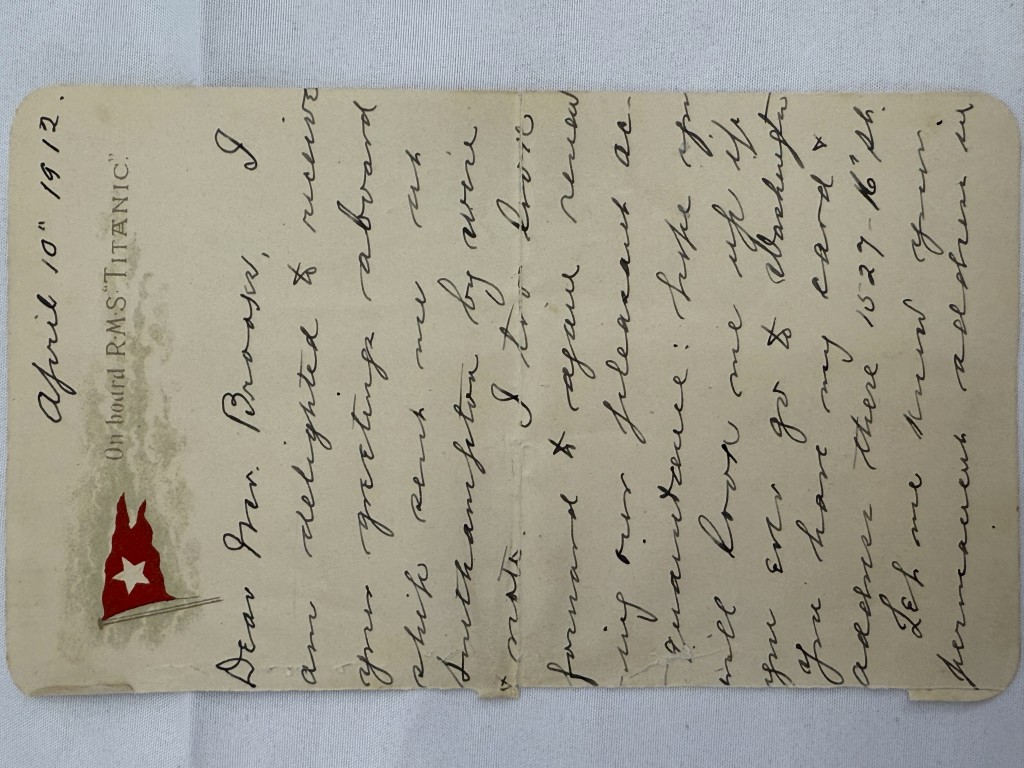 April 10" 1912.
On board R·M·S·"TITANIC".
Dear Mr. Bross, I
am delighted to receive
your greetings aboard
ship sent me at
Southampton by wire
& note. I too look
forward to again renew
ing our pleasant ac-
quaintance: hope you
will look me up if
you ever go to Washington
You have my card &
address there 1527-16" st.
Let me know your
permanent address in